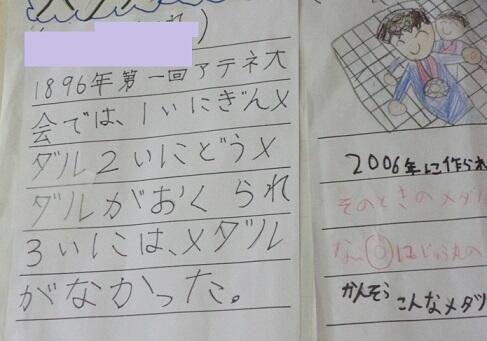 れ)
1896年第一回アテネ大
会では、1いにぎんメ
ダル2いにどうメ
ダルがおくられ
3いには、メダル
がなかった。
2006年に作られ
そのときのメダル
な
かんそう こんなメダツ